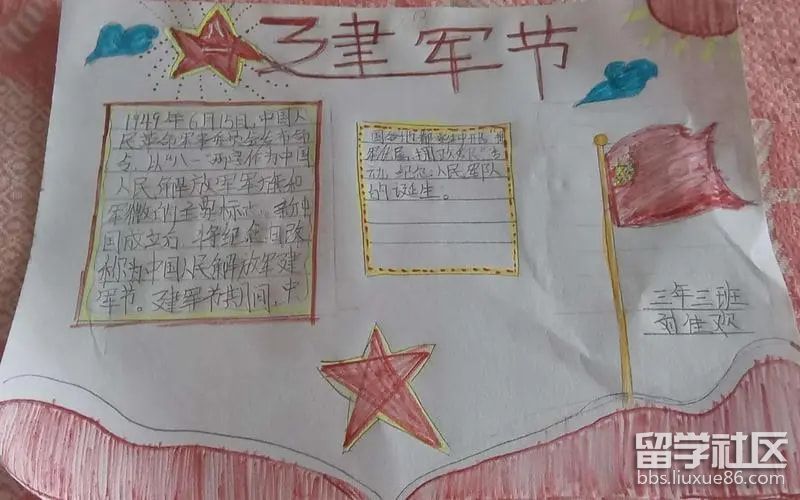 八一
建军节
1949年6月15日,中国人
民革命军事委员会发布命
令,以"八一"两字作为中国
人民解放军军旗和
军徽的主要标志。新中
国成立后,将纪念日改
称为中国人民解放军建
军节。建军节期间,中
国各地都要
动,纪念人民军队
的诞生。
三年三班
刘佳欢
留学社区
bbs.liuxue86.com